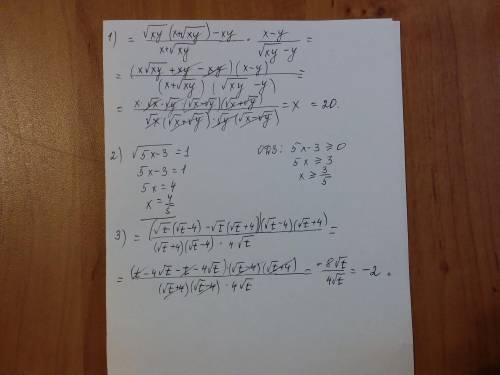 1) = (√xy (x+√xy) − xy)/(x+√xy) · (x−y)/(√xy − y) =
= ((x√xy + xy − xy)(x−y))/((x+√xy)(√xy − y)) =
= (x·√x·√y (√x−√y)(√x+√y))/(√x(√x+√y)·√y(√x−√y)) = x = 20.
2) √5x−3 = 1 ОДЗ: 5x−3 ≥ 0
5x−3 = 1 5x ≥ 3
5x = 4 x ≥ 3/5
x = 4/5
3) = ((√t(√t−4) − √t(√t+4))(√t−4)(√t+4))/((√t+4)(√t−4)·4√t) =
= ((t − 4√t − t − 4√t)(√t−4)(√t+4))/((√t+4)(√t−4)·4√t) = −8√t/4√t = −2.